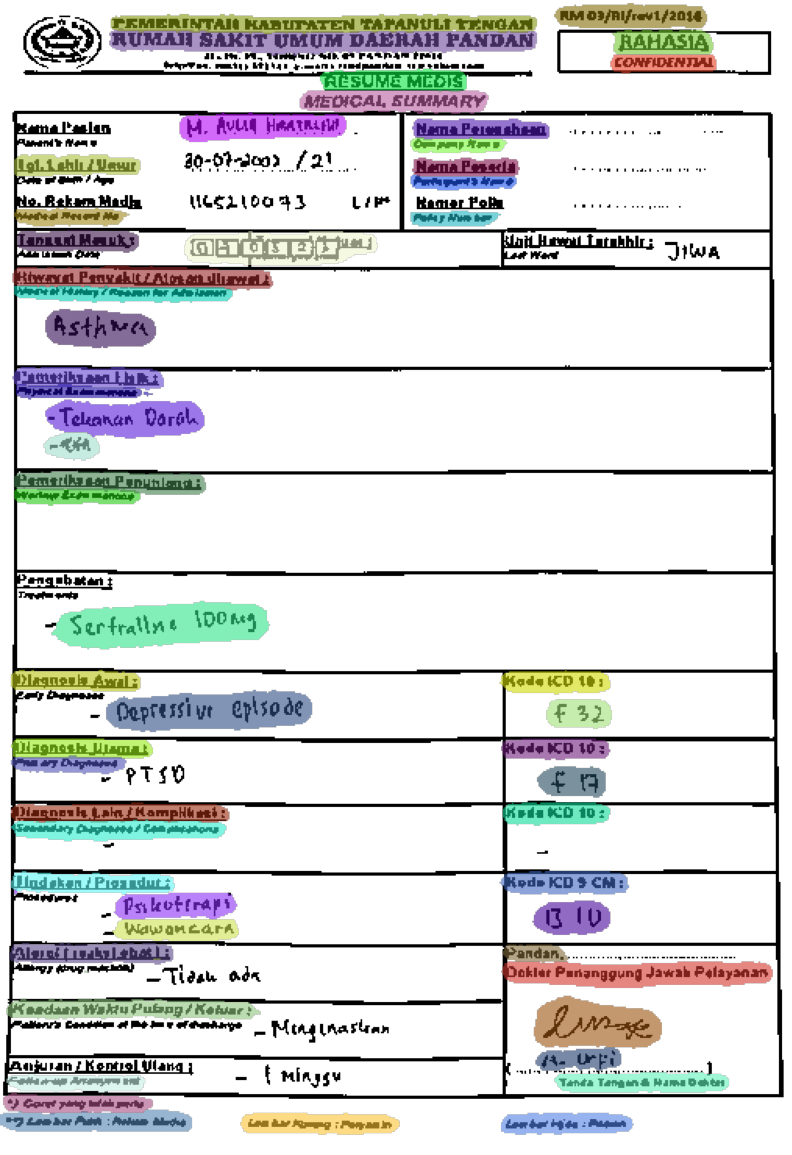 PEMERINTAH KABUPATEN TAPANULI TENGAH
RUMAH SAKIT UMUM DAERAH PANDAN
RM 03/RI/rev1/2014
RAHASIA
CONFIDENTIAL
RESUME MEDIS
MEDICAL SUMMARY
Nama Pasien
Patient's Name
M. Aulia
Nama Perusahaan
Company Name
Tgl. Lahir / Umur
Date of Birth / Age
30-07-2002 / 21
Nama Peserta
Participant's Name
No. Rekam Medis
Medical Record No
1165210073
L / P*
Nomor Polis
Policy Number
Tanggal Masuk :
Admission Date
Unit Rawat Terakhir :
Last Ward
JIWA
Riwayat Penyakit / Alasan dirawat :
Medical History / Reason for Admission
Asthma
Pemeriksaan Fisik :
Physical Examinations
- Tekanan Darah
Pemeriksaan Penunjang :
Workup Examinations
Pengobatan :
Treatments
- Sertraline 100 mg
Diagnosis Awal :
Early Diagnoses
- Depressive episode
Kode ICD 10 :
F 32
Diagnosis Utama :
Primary Diagnoses
- PTSD
Kode ICD 10 :
F 17
Diagnosis Lain / Komplikasi :
Secondary Diagnoses / Complications
-
Kode ICD 10 :
-
Tindakan / Prosedur :
Procedures
- Psikoterapi
- Wawancara
Kode ICD 9 CM :
Alergi (reaksi obat) :
Allergy (drug reaction)
- Tidak ada
Pandan,
Dokter Penanggung Jawab Pelayanan
Keadaan Waktu Pulang / Keluar :
Patient's Condition at the time of discharge
Anjuran / Kontrol Ulang :
Follow-up Arrangement
- 1 Minggu
Tanda Tangan & Nama Dokter
*) Coret yang tidak perlu
**) Lembar Putih : Rekam Medis
Lembar Kuning : Penjamin
Lembar Hijau : Pasien